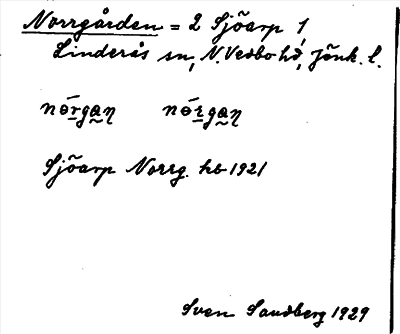 Norrgården = 2 Sjöarp 1
Linderås sn, N. Vedbo hd, Jönk. l.
nǿrgan̥ nǿrgan̥
Sjöarp Norrg. hb 1921
Sven Sandberg 1929